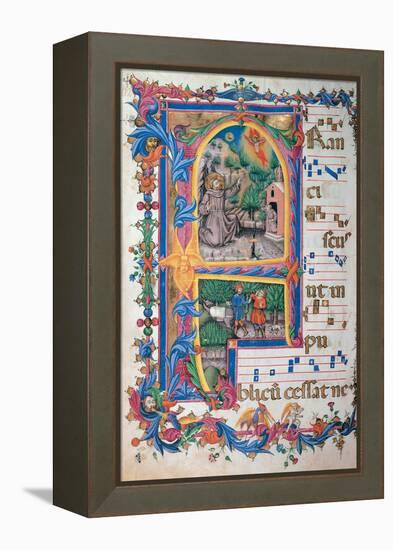 Fran
cis
cus
ut in
pu
blicū cessat ne